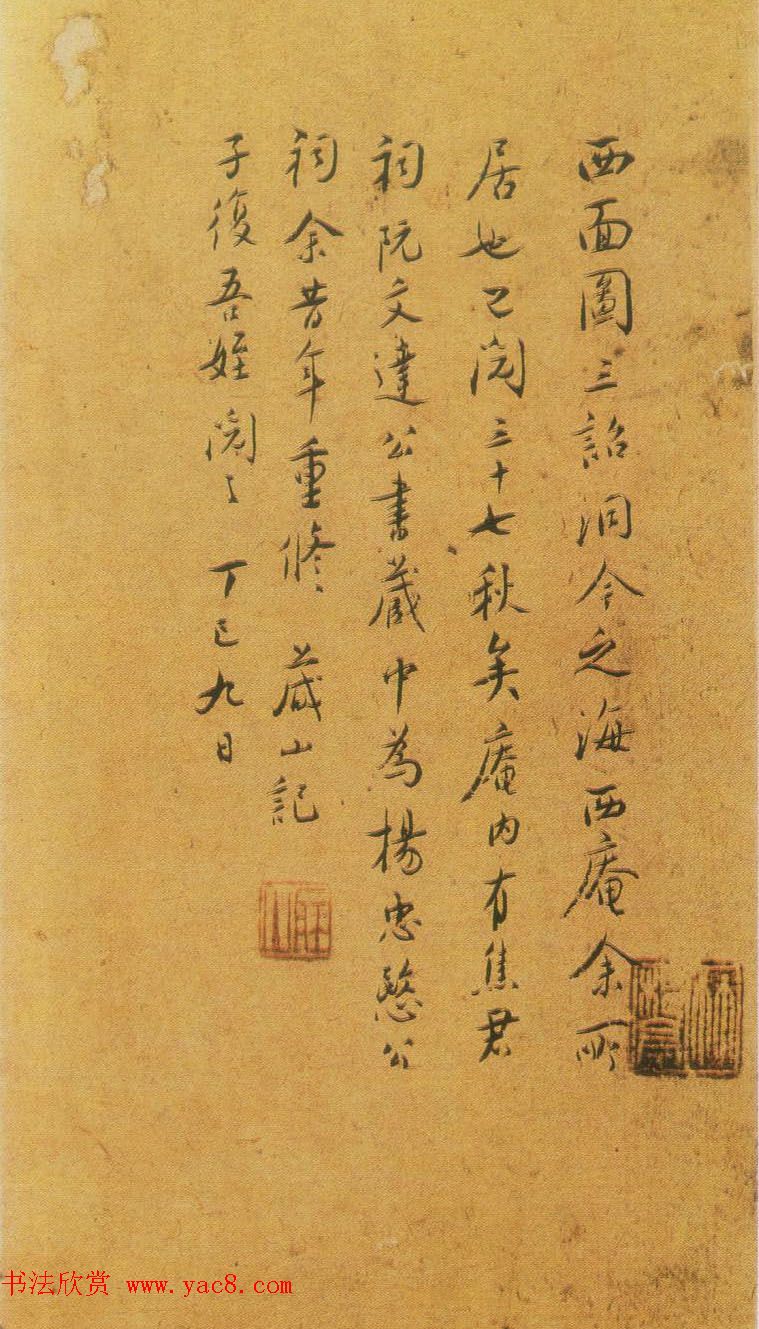 西面圖三詔洞今之海西庵余所
居也已閱三十七秋矣庵内有焦君
祠阮文達公書藏中為楊忠愍公
祠余昔年重修 蕆山記
子復吾姪閱之 丁巳九日
书法欣赏 www.yac8.com